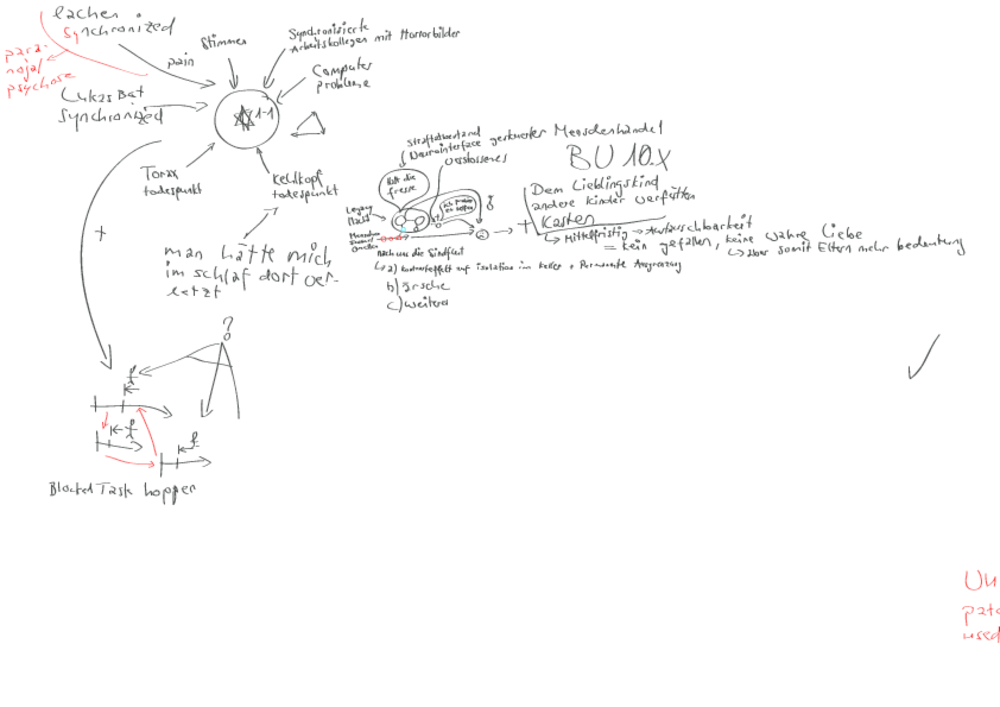 lachen
synchronized
para-
noja/
psychose
pain
Stimmen
Synchronisierte
Arbeitskollegen mit Horrorbilder
Computer
probleme
Lukas Bat
synchronized
1-1
Torax
todespunkt
Kehlkopf
todespunkt
man hätte mich
im schlaf dort ver-
letzt
+
Straftatbestand
Neurointerface gesteuerter Menschenhandel
Verstossenes
BU 10.X
Halt die
fresse
Legacy
Macht
Menschen
+
Dem Lieblingskind
andere Kinder verfüttern
Kasten
↳ Mittelfristig → Austauschbarkeit
= kein gefallen, keine wahre Liebe
↳ Aber somit Eltern mehr bedeutung
Nach uns die Sindflut
↳ a) auf isolation im Keller + Permanente Ausgrenzung
b) ärsche
c) weiteres
?
Blocked Task hopper